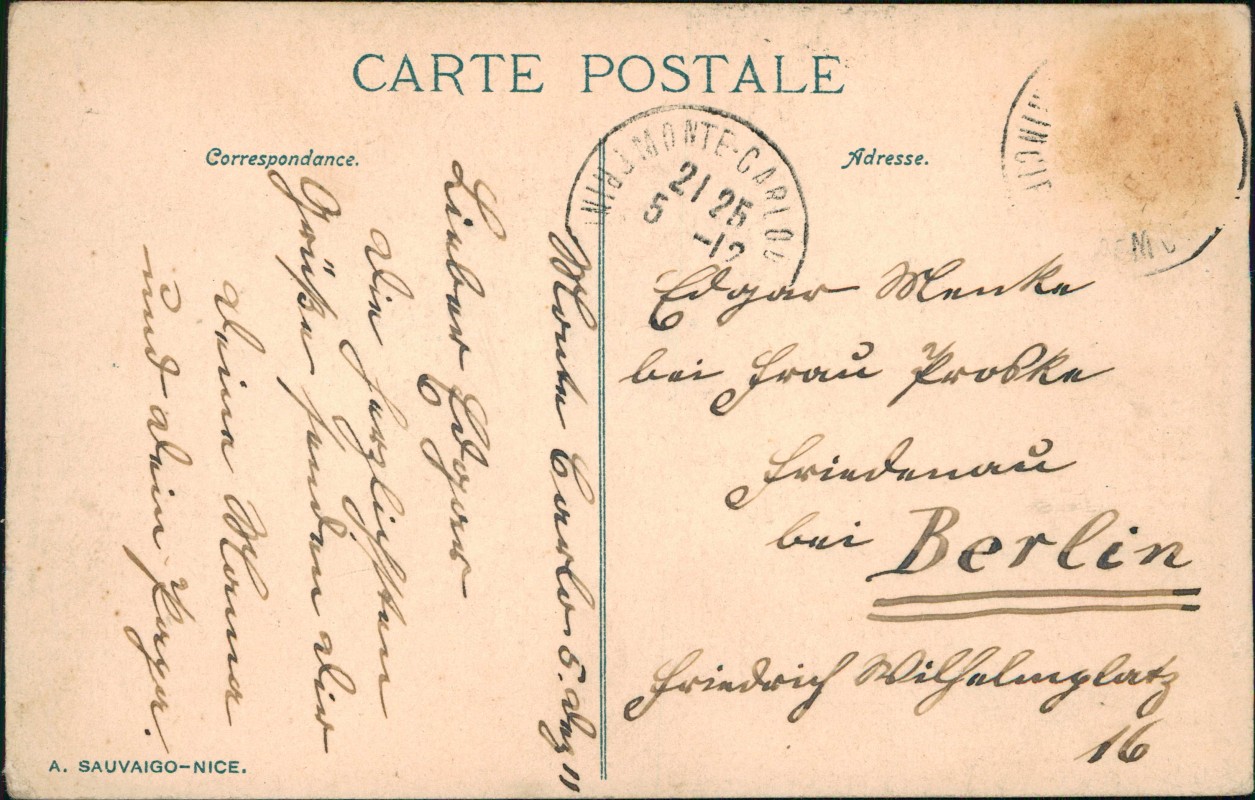 CARTE POSTALE
Correspondance.
Adresse.
MONTE-CARLO
21 25
5 -12
Monte Carlo 5. Dez 11
Lieber Edgar
die herzlichsten
Grüße senden dir
deine Mama
und dein Papa.
Edgar Menke
bei Frau Proske
Friedenau
bei Berlin
Friedrich Wilhelmplatz
16
A. SAUVAIGO–NICE.